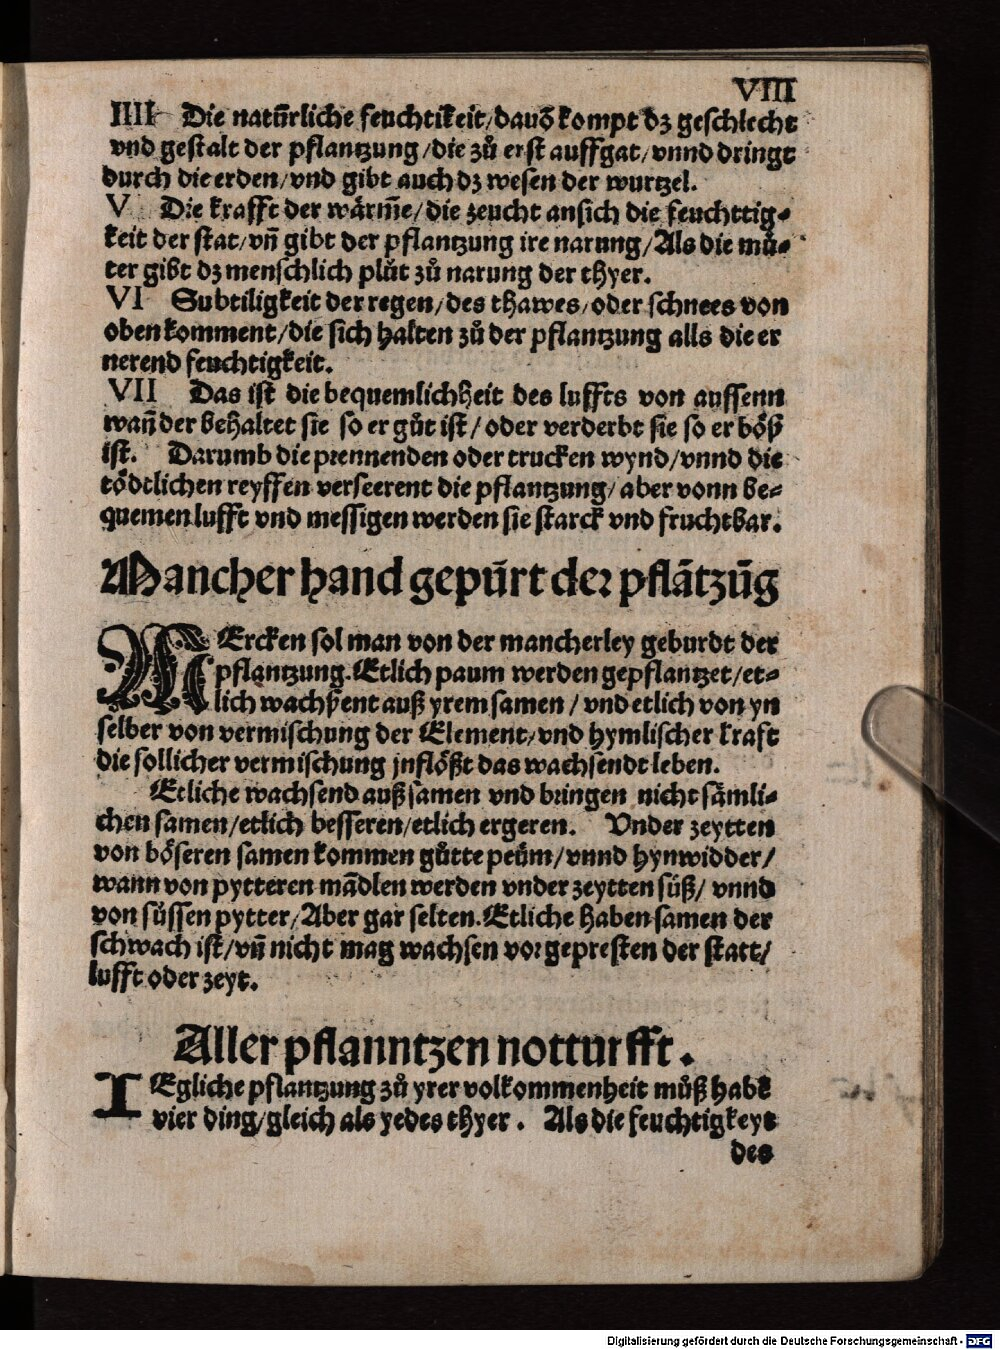 VIII
IIII Die natürliche feuchtikeit/dauō kompt dz geschlecht
vnd gestalt der pflantzung/die zů erst auffgat/vnnd dringt
durch die erden/vnd gibt auch dz wesen der wurtzel.
V Die krafft der wärm̄e/die zeucht ansich die feuchttig⸗
keit der stat/vn̄ gibt der pflantzung ire narung/Als die mů⸗
ter gibt dz menschlich plůt zů narung der thyer.
VI Subtiligkeit der regen/des thawes/oder schnees von
oben komment/die sich halten zů der pflantzung alls die er
nerend feuchtigkeit.
VII Das ist die bequemlichheit des luffts von aussenn
wan̄ der behaltet sie so er gůt ist/oder verderbt sie so er bôß
ist. Darumb die prennenden oder trucken wynd/vnnd die
tôdtlichen reyffen verseerent die pflantzung/aber vonn be⸗
quemen lufft vnd messigen werden sie starck vnd fruchtbar.
Mancher hand gepūrt der pflātzūg
MErcken sol man von der mancherley geburdt der
pflantzung. Etlich paum werden gepflantzet/et⸗
lich wachßent auß yrem samen/vnd etlich von yn
selber von vermischung der Element/vnd hymlischer kraft
die sollicher vermischung jnflôßt das wachsendt leben.
Etliche wachsend auß samen vnd bringen nicht sämli⸗
chen samen/etlich besseren/etlich ergeren. Vnder zeytten
von bôseren samen kommen gůtte peům/vnnd hynwidder/
wann von pytteren mādlen werden vnder zeytten süß/vnnd
von süssen pytter/Aber gar selten. Etliche haben samen der
schwach ist/vn̄ nicht mag wachsen vor gepresten der statt/
lufft oder zeyt.
Aller pflanntzen notturfft.
IEgliche pflantzung zů yrer volkommenheit můß habē
vier ding/gleich als yedes thyer. Als die feuchtigkeyt
des
Digitalisierung gefördert durch die Deutsche Forschungsgemeinschaft - DFG